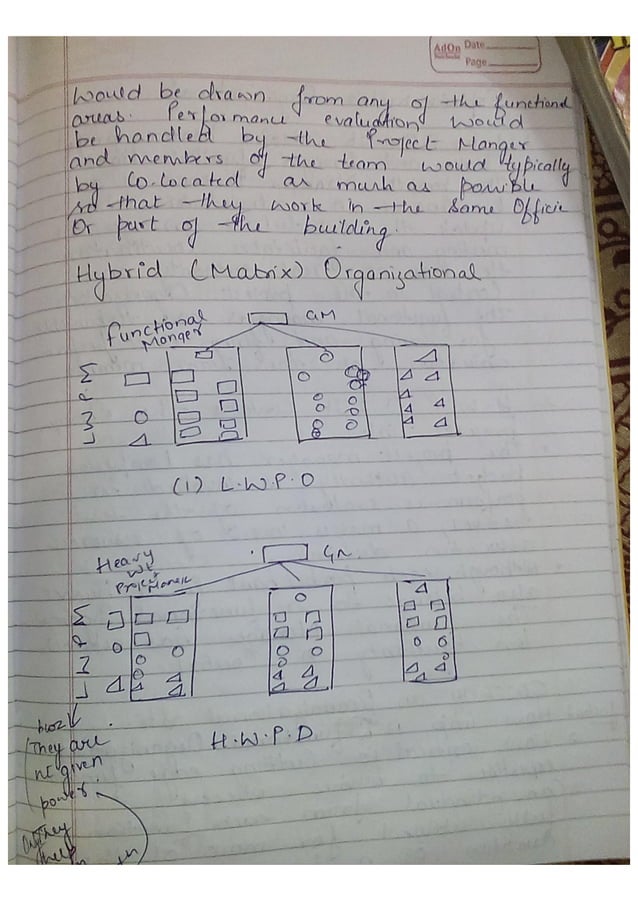 AdOn Date
Page
would be drawn from any of the functiond
areas. Performance evaluation would
be handled by the Project Manger
and members of the team would typically
by Co.located as much as possible
so that they work in the Same Officie
Or part of the building.
Hybrid (Matrix) Organizational
Functional
Manger
GM
(1) L.W.P.O
Heavy
Wt
GM
H.W.P.D
They are
not given
power.
They
help